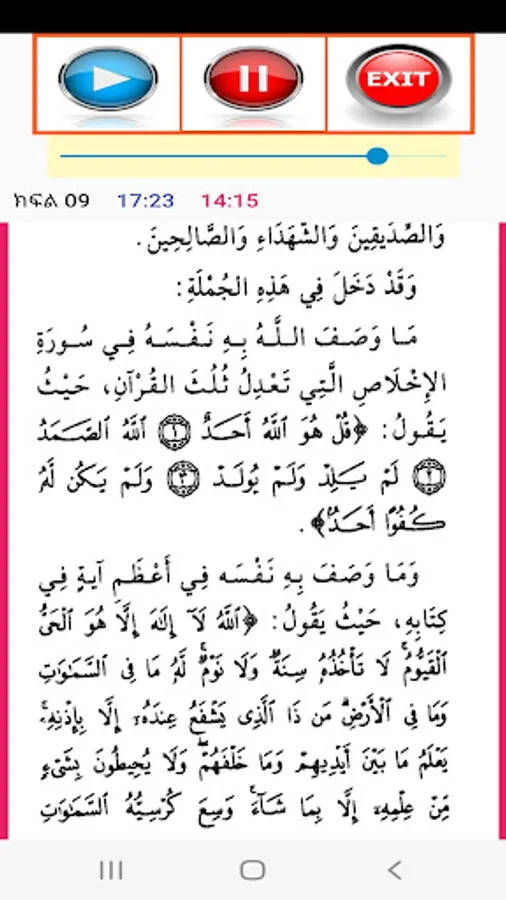 EXIT
ክፍል 09 17:23 14:15
وَالصِّدِّيقِينَ وَالشُّهَدَاءِ وَالصَّالِحِينَ.
وَقَدْ دَخَلَ فِي هَذِهِ الجُمْلَةِ:
مَا وَصَفَ اللَّهُ بِهِ نَفْسَهُ فِي سُورَةِ
الإِخْلَاصِ الَّتِي تَعْدِلُ ثُلُثَ القُرْآنِ، حَيْثُ
يَقُولُ: ﴿قُلْ هُوَ ٱللَّهُ أَحَدٌ ۝١ ٱللَّهُ ٱلصَّمَدُ
۝٢ لَمْ يَلِدْ وَلَمْ يُولَدْ ۝٣ وَلَمْ يَكُن لَّهُۥ
كُفُوًا أَحَدٌۢ﴾.
وَمَا وَصَفَ بِهِ نَفْسَه فِي أَعْظَمِ آيَةٍ فِي
كِتَابِهِ، حَيْثُ يَقُولُ: ﴿ٱللَّهُ لَآ إِلَٰهَ إِلَّا هُوَ ٱلْحَىُّ
ٱلْقَيُّومُ ۚ لَا تَأْخُذُهُۥ سِنَةٌ وَلَا نَوْمٌ ۚ لَّهُۥ مَا فِى ٱلسَّمَٰوَٰتِ
وَمَا فِى ٱلْأَرْضِ ۗ مَن ذَا ٱلَّذِى يَشْفَعُ عِندَهُۥٓ إِلَّا بِإِذْنِهِۦ ۚ
يَعْلَمُ مَا بَيْنَ أَيْدِيهِمْ وَمَا خَلْفَهُمْ ۖ وَلَا يُحِيطُونَ بِشَىْءٍ
مِّنْ عِلْمِهِۦٓ إِلَّا بِمَا شَآءَ ۚ وَسِعَ كُرْسِيُّهُ ٱلسَّمَٰوَٰتِ